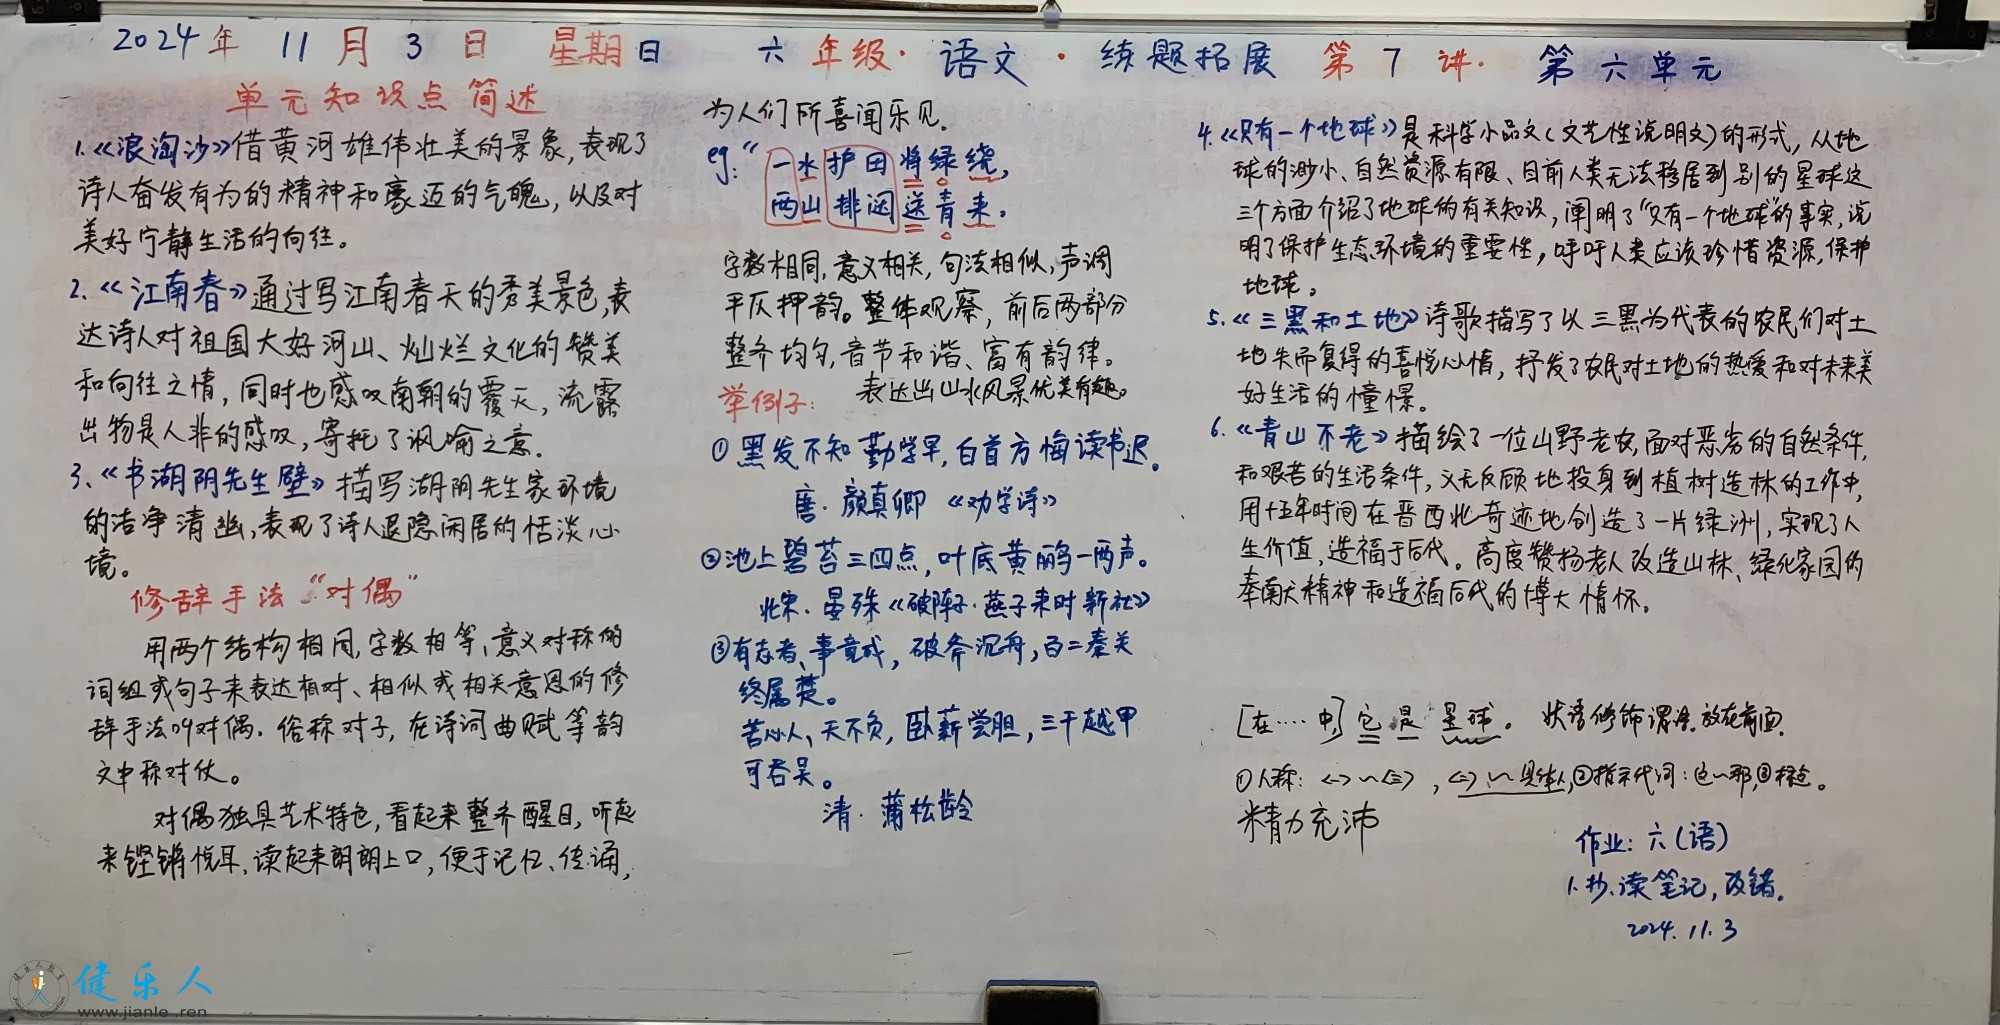 2024年 11月3日 星期日 六年级·语文·练题拓展 第7讲·第六单元
单元知识点简述
1.《浪淘沙》借黄河雄伟壮美的景象,表现了
诗人奋发有为的精神和豪迈的气魄,以及对
美好宁静生活的向往。
2.《江南春》通过写江南春天的秀美景色,表
达诗人对祖国大好河山、灿烂文化的赞美
和向往之情,同时也感叹南朝的覆灭,流露
出物是人非的感叹,寄托了讽喻之意.
3.《书湖阴先生壁》描写湖阴先生家环境
的洁净清幽,表现了诗人退隐闲居的恬淡心
境。
修辞手法“对偶”
用两个结构相同,字数相等、意义对称的
词组或句子来表达相对、相似或相关意思的修
辞手法叫对偶.俗称对子,在诗词曲赋等韵
文中称对仗。
对偶独具艺术特色,看起来整齐醒目,听起
来铿锵悦耳,读起来朗朗上口,便于记忆、传诵,
为人们所喜闻乐见.
eg:“一水护田将绿绕,
两山排闼送青来.
字数相同,意义相关,句法相似,声调
平仄押韵。整体观察,前后两部分
整齐均匀,音节和谐、富有韵律。
表达出山水风景优美有趣。
举例子:
①黑发不知勤学早,白首方悔读书迟。
唐.颜真卿《劝学诗》
②池上碧苔三四点,叶底黄鹂一两声。
北宋.晏殊《破阵子·燕子来时新社》
③有志者、事竟成,破斧沉舟,百二秦关
终属楚。
苦心人、天不负,卧薪尝胆,三千越甲
可吞吴。
清.蒲松龄
4.《只有一个地球》是科学小品文(文艺性说明文)的形式,从地
球的渺小、自然资源有限、目前人类无法移居到别的星球这
三个方面介绍了地球的有关知识,阐明了“只有一个地球”的事实,说
明了保护生态环境的重要性,呼吁人类应该珍惜资源,保护
地球。
5.《三黑和土地》诗歌描写了以三黑为代表的农民们对土
地失而复得的喜悦心情,抒发了农民对土地的热爱和对未来美
好生活的憧憬。
6.《青山不老》描绘了一位山野老农,面对恶劣的自然条件,
和艰苦的生活条件,义无反顾地投身到植树造林的工作中,
用十五年时间在晋西北奇迹地创造了一片绿洲,实现了人
生价值,造福于后代。高度赞扬老人改造山林、绿化家园的
奉献精神和造福后代的博大情怀。
[在……中]它是星球。 状语修饰谓语.放在前面.
①人称: , 具体人,②指示代词:这~那,③标点。
精力充沛
作业:六(语)
1.抄、读笔记,改错.
2024.11.3
健乐人
www.jianle.ren